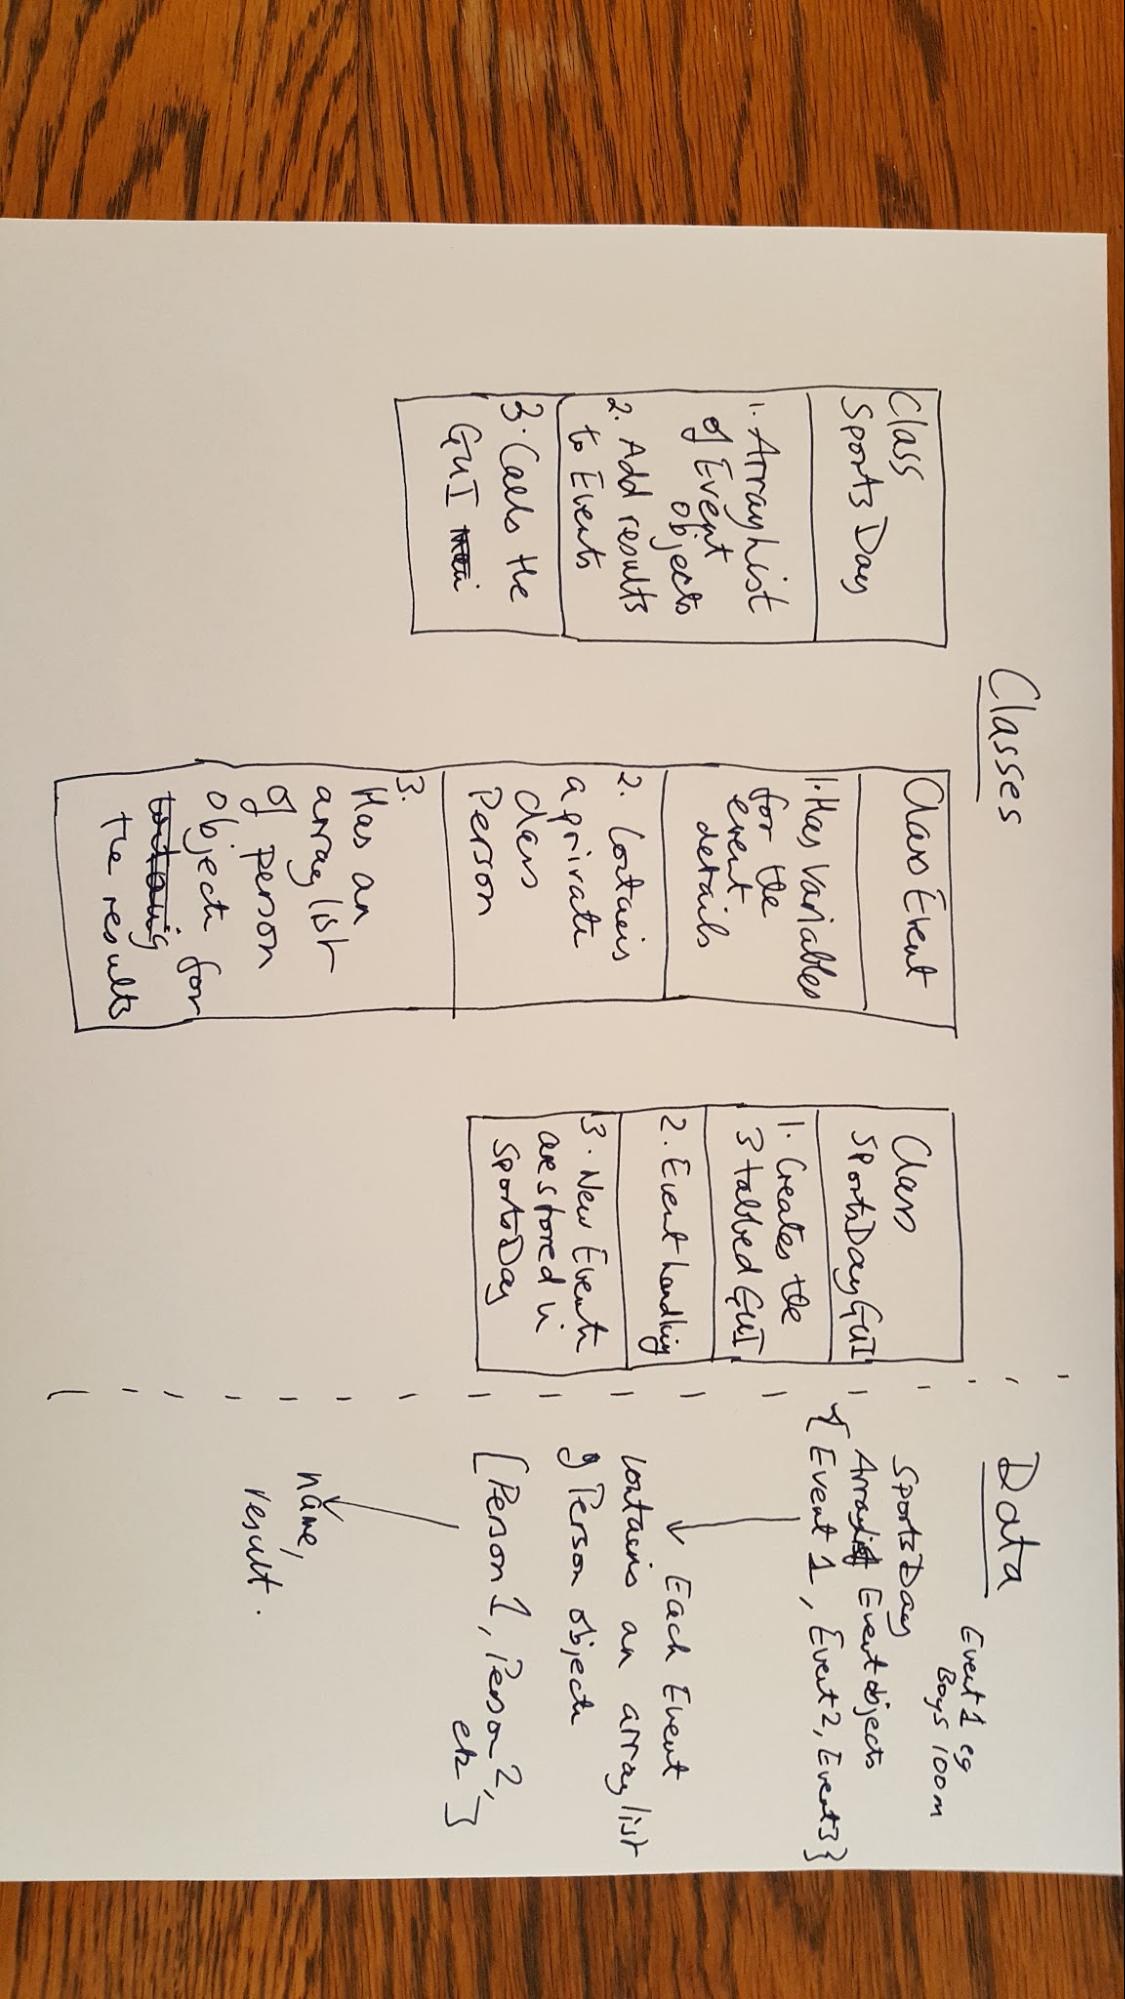 Classes
Class
SportsDay
1. ArrayList
of Event
objects
2. Add results
to Events
3. Calls the
GUI
Class Event
1. Has variables
for the
event
details
2. Contains
a private
class
Person
3.
Has an
array list
of person
object for
the results
Class
SportsDayGUI
1. Creates the
3 tabbed GUI
2. Event handling
3. New Events
are stored in
SportsDay
Data
Event 1 eg
Boys 100m
SportsDay
Arraylist Event objects
{Event 1, Event 2, Event 3}
Each Event
contains an array list
of Person objects
[Person 1, Person 2,
etc]
name,
result.